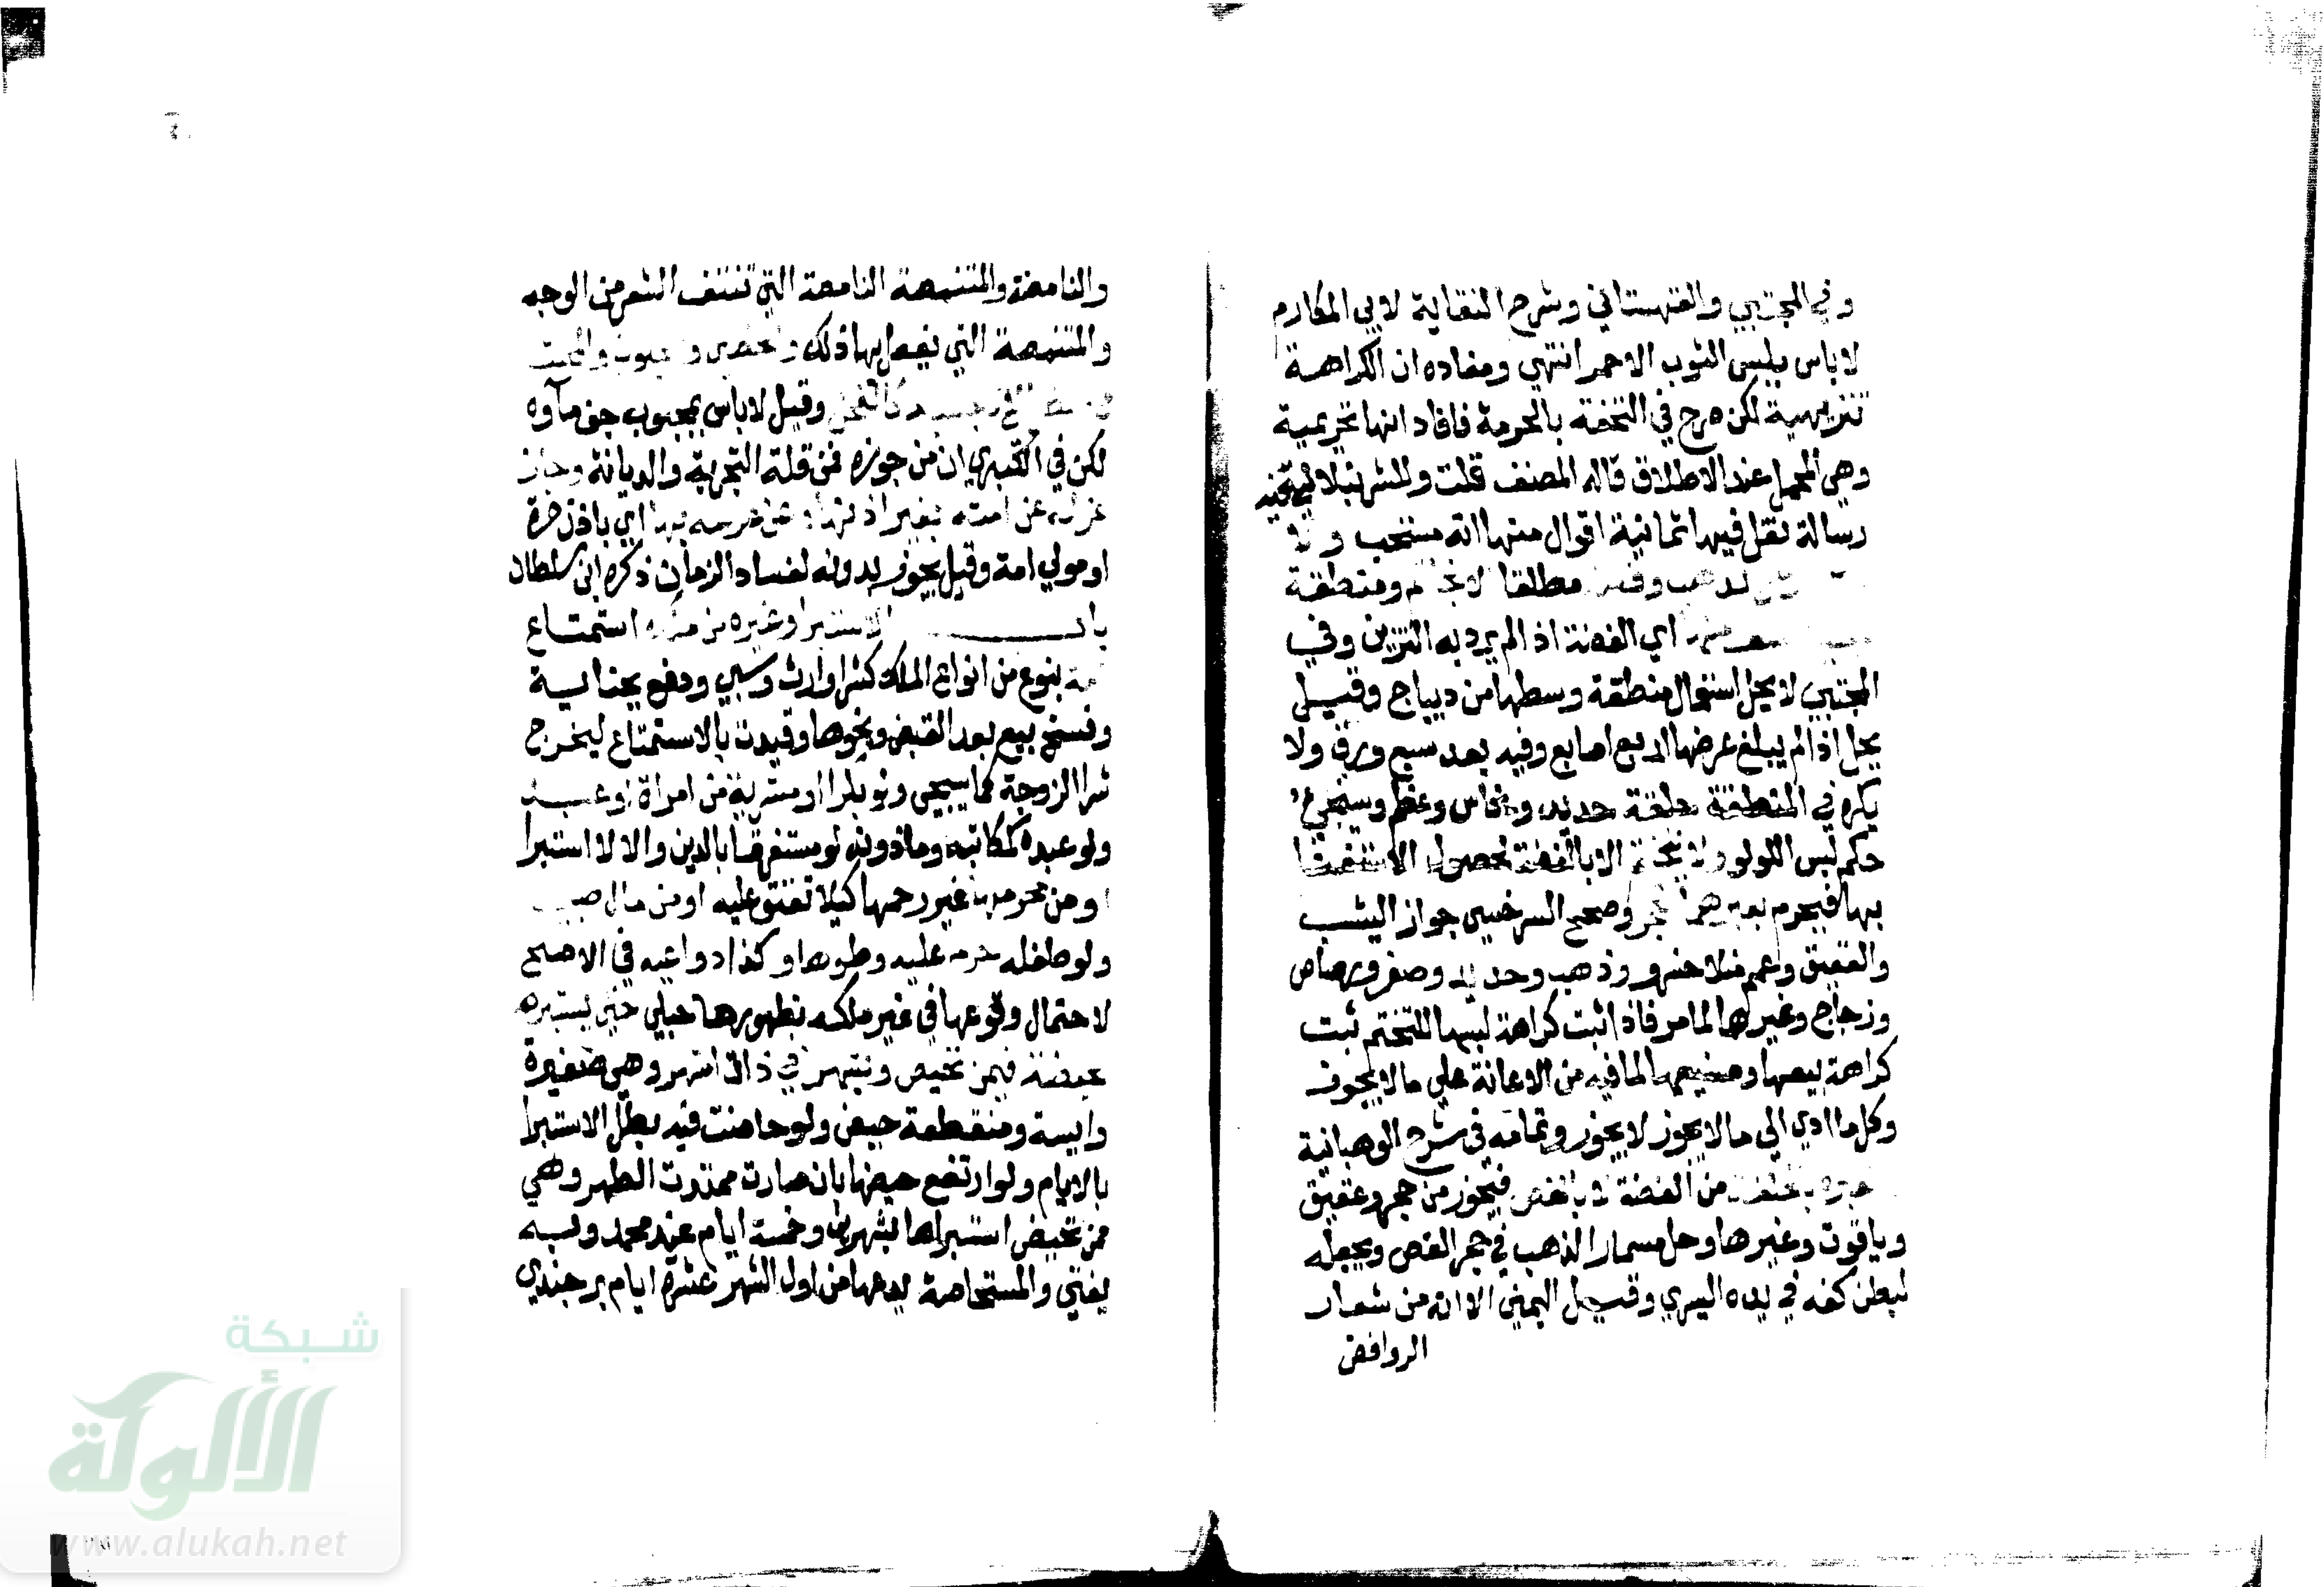 وفي المجتبي والقهستاني وشرح النقاية لابي المكارم
لا باس بلبس الثوب الاحمر انتهي ومفاده ان الكراهة
تنزيهية لكن صرح في التحفة بالحرمة فافاد انها تحريمية
وهي المحمل عند الاطلاق قاله المصنف قلت وللشرنبلالي فيه
رسالة نقل فيها ثمانية اقوال منها انه مستحب ولا
مطلقا ومنطقة
اي الفضة اذا لم يرد به التزين وفي
المجتبي لا يحل استعمال منطقة وسطها من ديباج وقيل
يحل اذا لم يبلغ عرضها اربع اصابع وفيه بعد سبع ورق ولا
يكره في المنطقة حلقة حديد ونحاس وعظم وسيجيء
حكم لبس اللولو ولا يتختم الا بالفضة لحصول الاستغنا
بها فيحرم بغيرها كحجر وصحح السرخسي جواز اليشب
والعقيق وعمم منلا خسرو وذهب وحديد وصفر ورصاص
وزجاج وغيرها لما مر فاذا ثبت كراهة لبسها للتختم ثبت
كراهة بيعها وصيغها لما فيه من الاعانة علي ما لا يجوز
وكل ما ادي الي ما لا يجوز لا يجوز وتمامه في شرح الوهبانية
من الفضة لا بالفص فيجوز من حجر وعقيق
وياقوت وغيرها وحل مسمار الذهب في حجر الفص ويجعله
لبطن كفه في يده اليسري وقيل اليمني الا انه من شعار
الروافض
والنامصة والمتنمصة النامصة التي تنتف الشعر من الوجه
والمتنمصة التي يفعل بها ذلك
كالفحل وقيل لا باس بمجبوب جف مآوه
لكن في الكبري ان من جوزه فمن قلة التجربة والديانة وجاز
عزله عن امته بغير اذنها وعن عرسه بها اي باذن حرة
او مولي امة وقيل يجوز بدونه لفساد الزمان ذكره ابن سلطان
باب الاستبرا وغيره من ملك استمتاع
امة بنوع من انواع الملك كشرا وارث وسبي ودفع بجناية
وفسخ بيع بعد القبض ونحوها وقيدت بالاستمتاع ليخرج
شرا الزوجة كما سيجي ولو بكرا او مشرية من امراة او عبد
ولو عبده كمكاتبه وماذونه لو مستغرقا بالدين والا لا استبرا
او من محرمها غير رحمها كيلا تعتق عليه او من مال صبي
ولو طفله حرم عليه وطوها وكذا دواعيه في الاصح
لاحتمال وقوعها في غير ملكه بظهورها حبلي حتي يستبره
بحيضة فيمن تحيض وبشهر في ذات اشهر وهي صغيرة
وايسة ومنقطعة حيض ولو حاضت فيه بطل الاستبرا
بالايام ولو ارتفع حيضها بان صارت ممتدت الطهر وهي
ممن تحيض استبراها بشهرين وخمسة ايام عند محمد وبه
يفتي والمستحاضة يدعها من اول الشهر عشرة ايام برجندي
شبكة
الألوكة
www.alukah.net